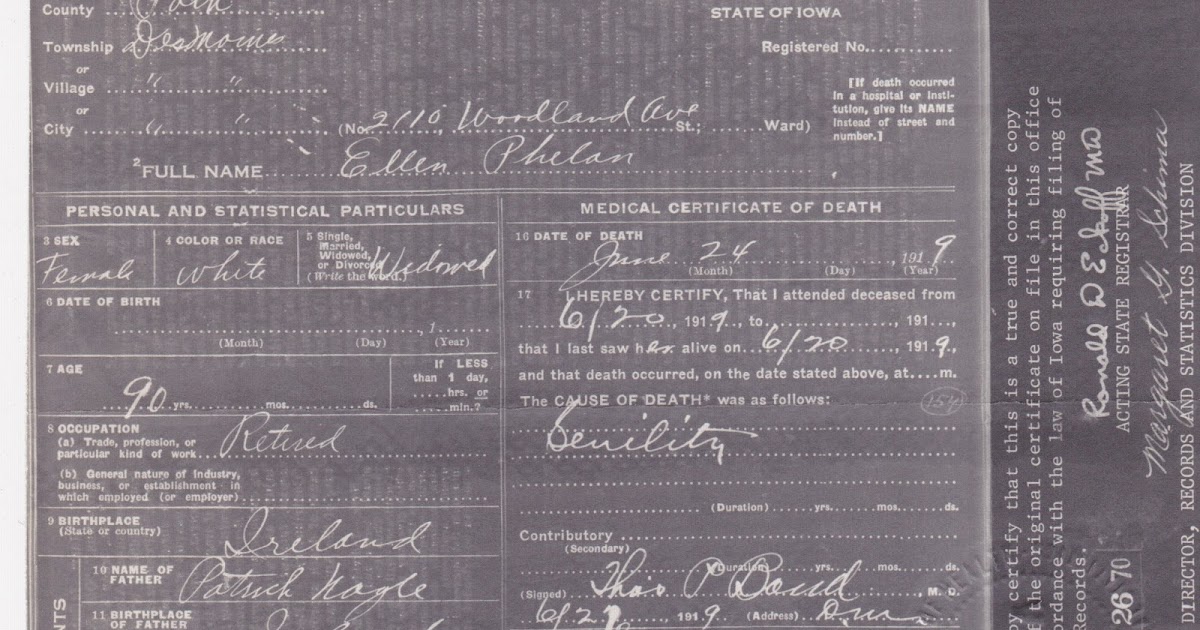 County Polk
STATE OF IOWA
Township DesMoines
Registered No.
or
Village " "
[If death occurred
in a hospital or insti-
tution, give its NAME
instead of street and
number.]
or
City " " (No. 2110 Woodland Ave St.; Ward)
2 FULL NAME Ellen Phelan
PERSONAL AND STATISTICAL PARTICULARS
3 SEX
Female
4 COLOR OR RACE
White
5 Single,
Married,
Widowed,
or Divorced
(Write the word.)
Widowed
6 DATE OF BIRTH
, 1
(Month) (Day) (Year)
7 AGE
90 yrs. mos. ds.
If LESS
than 1 day,
hrs. or
min.?
8 OCCUPATION
(a) Trade, profession, or
particular kind of work Retired
(b) General nature of industry,
business, or establishment in
which employed (or employer)
9 BIRTHPLACE
(State or country)
Ireland
10 NAME OF
FATHER
Patrick Nagle
11 BIRTHPLACE
OF FATHER
NTS
MEDICAL CERTIFICATE OF DEATH
16 DATE OF DEATH
June 24, 1919
(Month) (Day) (Year)
17 I HEREBY CERTIFY, That I attended deceased from
6/20, 1919, to , 191 ,
that I last saw her alive on 6/20, 1919,
and that death occurred, on the date stated above, at m.
The CAUSE OF DEATH* was as follows:
154
Senility
(Duration) yrs. mos. ds.
Contributory
(Secondary)
(Duration) yrs. mos. ds.
(Signed) Thos P Bond, M. D.
6/2 1919 (Address) Dm
y certify that this is a true and correct copy
f the original certificate on file in this office
ordance with the law of Iowa requiring filing of
Records.
Ronald D Eckoff MD
ACTING STATE REGISTRAR
Margaret G. Schima
DIRECTOR, RECORDS AND STATISTICS DIVISION
26 70